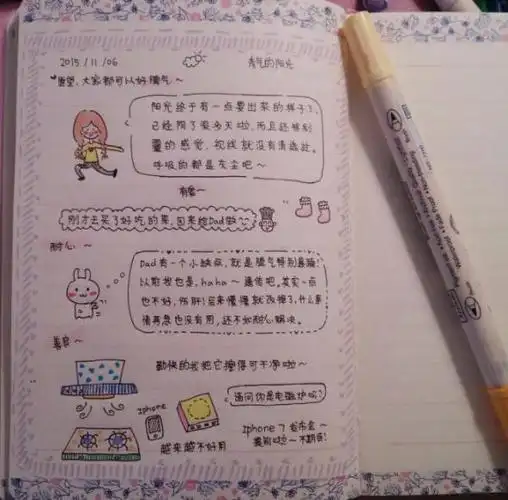 2015/11/06
秀气的阳光
希望,大家都可以好脾气~
阳光终于有一点要出来的样子了,
已经阴了很多天啦,而且还特别
霾的感觉,视线就没有清晰过。
呼吸的都是灰尘吧~
有爱~
刚才去买了好吃的菜,回来给Dad做~
耐心~
Dad有一个小缺点,就是脾气特别暴躁!
以前我也是,haha~遗传吧,其实一点
也不好,伤肝!后来慢慢就改掉了,什么事
情再急也没有用,还不如耐心解决。
善良~
勤快的我把它擦得可干净啦~
请问你是电磁炉吗?
iphone
越来越不好用
iphone 7 发布会~